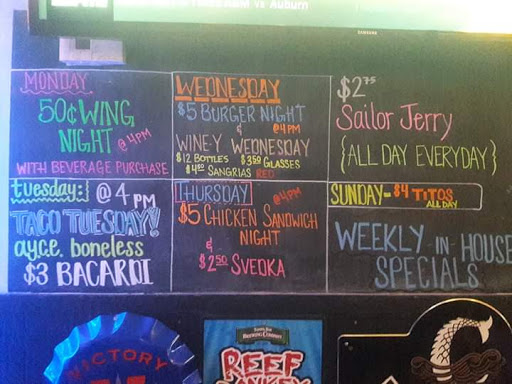 vs Auburn
SAMSUNG
MONDAY
50¢ WING
NIGHT @ 4PM
WITH BEVERAGE PURCHASE
WEDNESDAY
$5 BURGER NIGHT
& @ 4PM
WINE-Y WEDNESDAY
$12 BOTTLES $3.50 GLASSES
$4.50 SANGRIAS RED
$2.75
Sailor Jerry
{ALL DAY EVERYDAY}
tuesday: @ 4 PM
TACO TUESDAY!
a.y.c.e. boneless
$3 BACARDI
THURSDAY @ 4PM
$5 CHICKEN SANDWICH
NIGHT
&
$2.50 SVEDKA
SUNDAY- $4 TITOS
ALL DAY
WEEKLY IN-HOUSE
SPECIALS
VICTORY
BREWING COMPANY
REEF
DONKEY